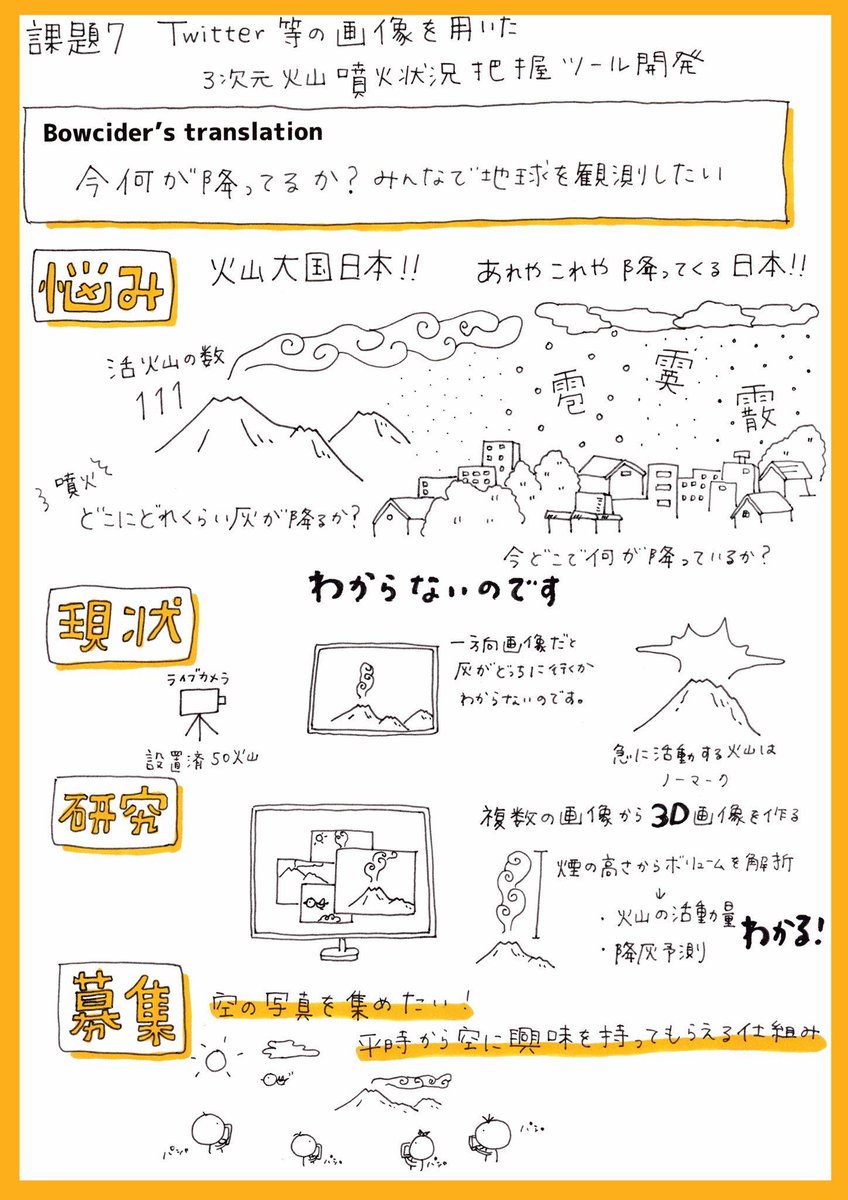 課題7 Twitter等の画像を用いた
3次元火山噴火状況把握ツール開発
Bowcider's translation
今何が降ってるか?みんなで地球を観測したい
悩み
火山大国日本!!
あれやこれや降ってくる日本!!
活火山の数
111
雹
霙
霰
噴火で
どこにどれくらい灰が降るか?
今どこで何が降っているか?
わからないのです
現状
ライブカメラ
設置済50火山
一方向画像だと
灰がどっちに行くか
わからないのです。
急に活動する火山は
ノーマーク
研究
複数の画像から3D画像を作る
煙の高さからボリュームを解析
↓
・火山の活動量
・降灰予測
わかる!
募集
空の写真を集めたい!
平時から空に興味を持ってもらえる仕組み
パシャ
パシャ
パシャ
パシャ